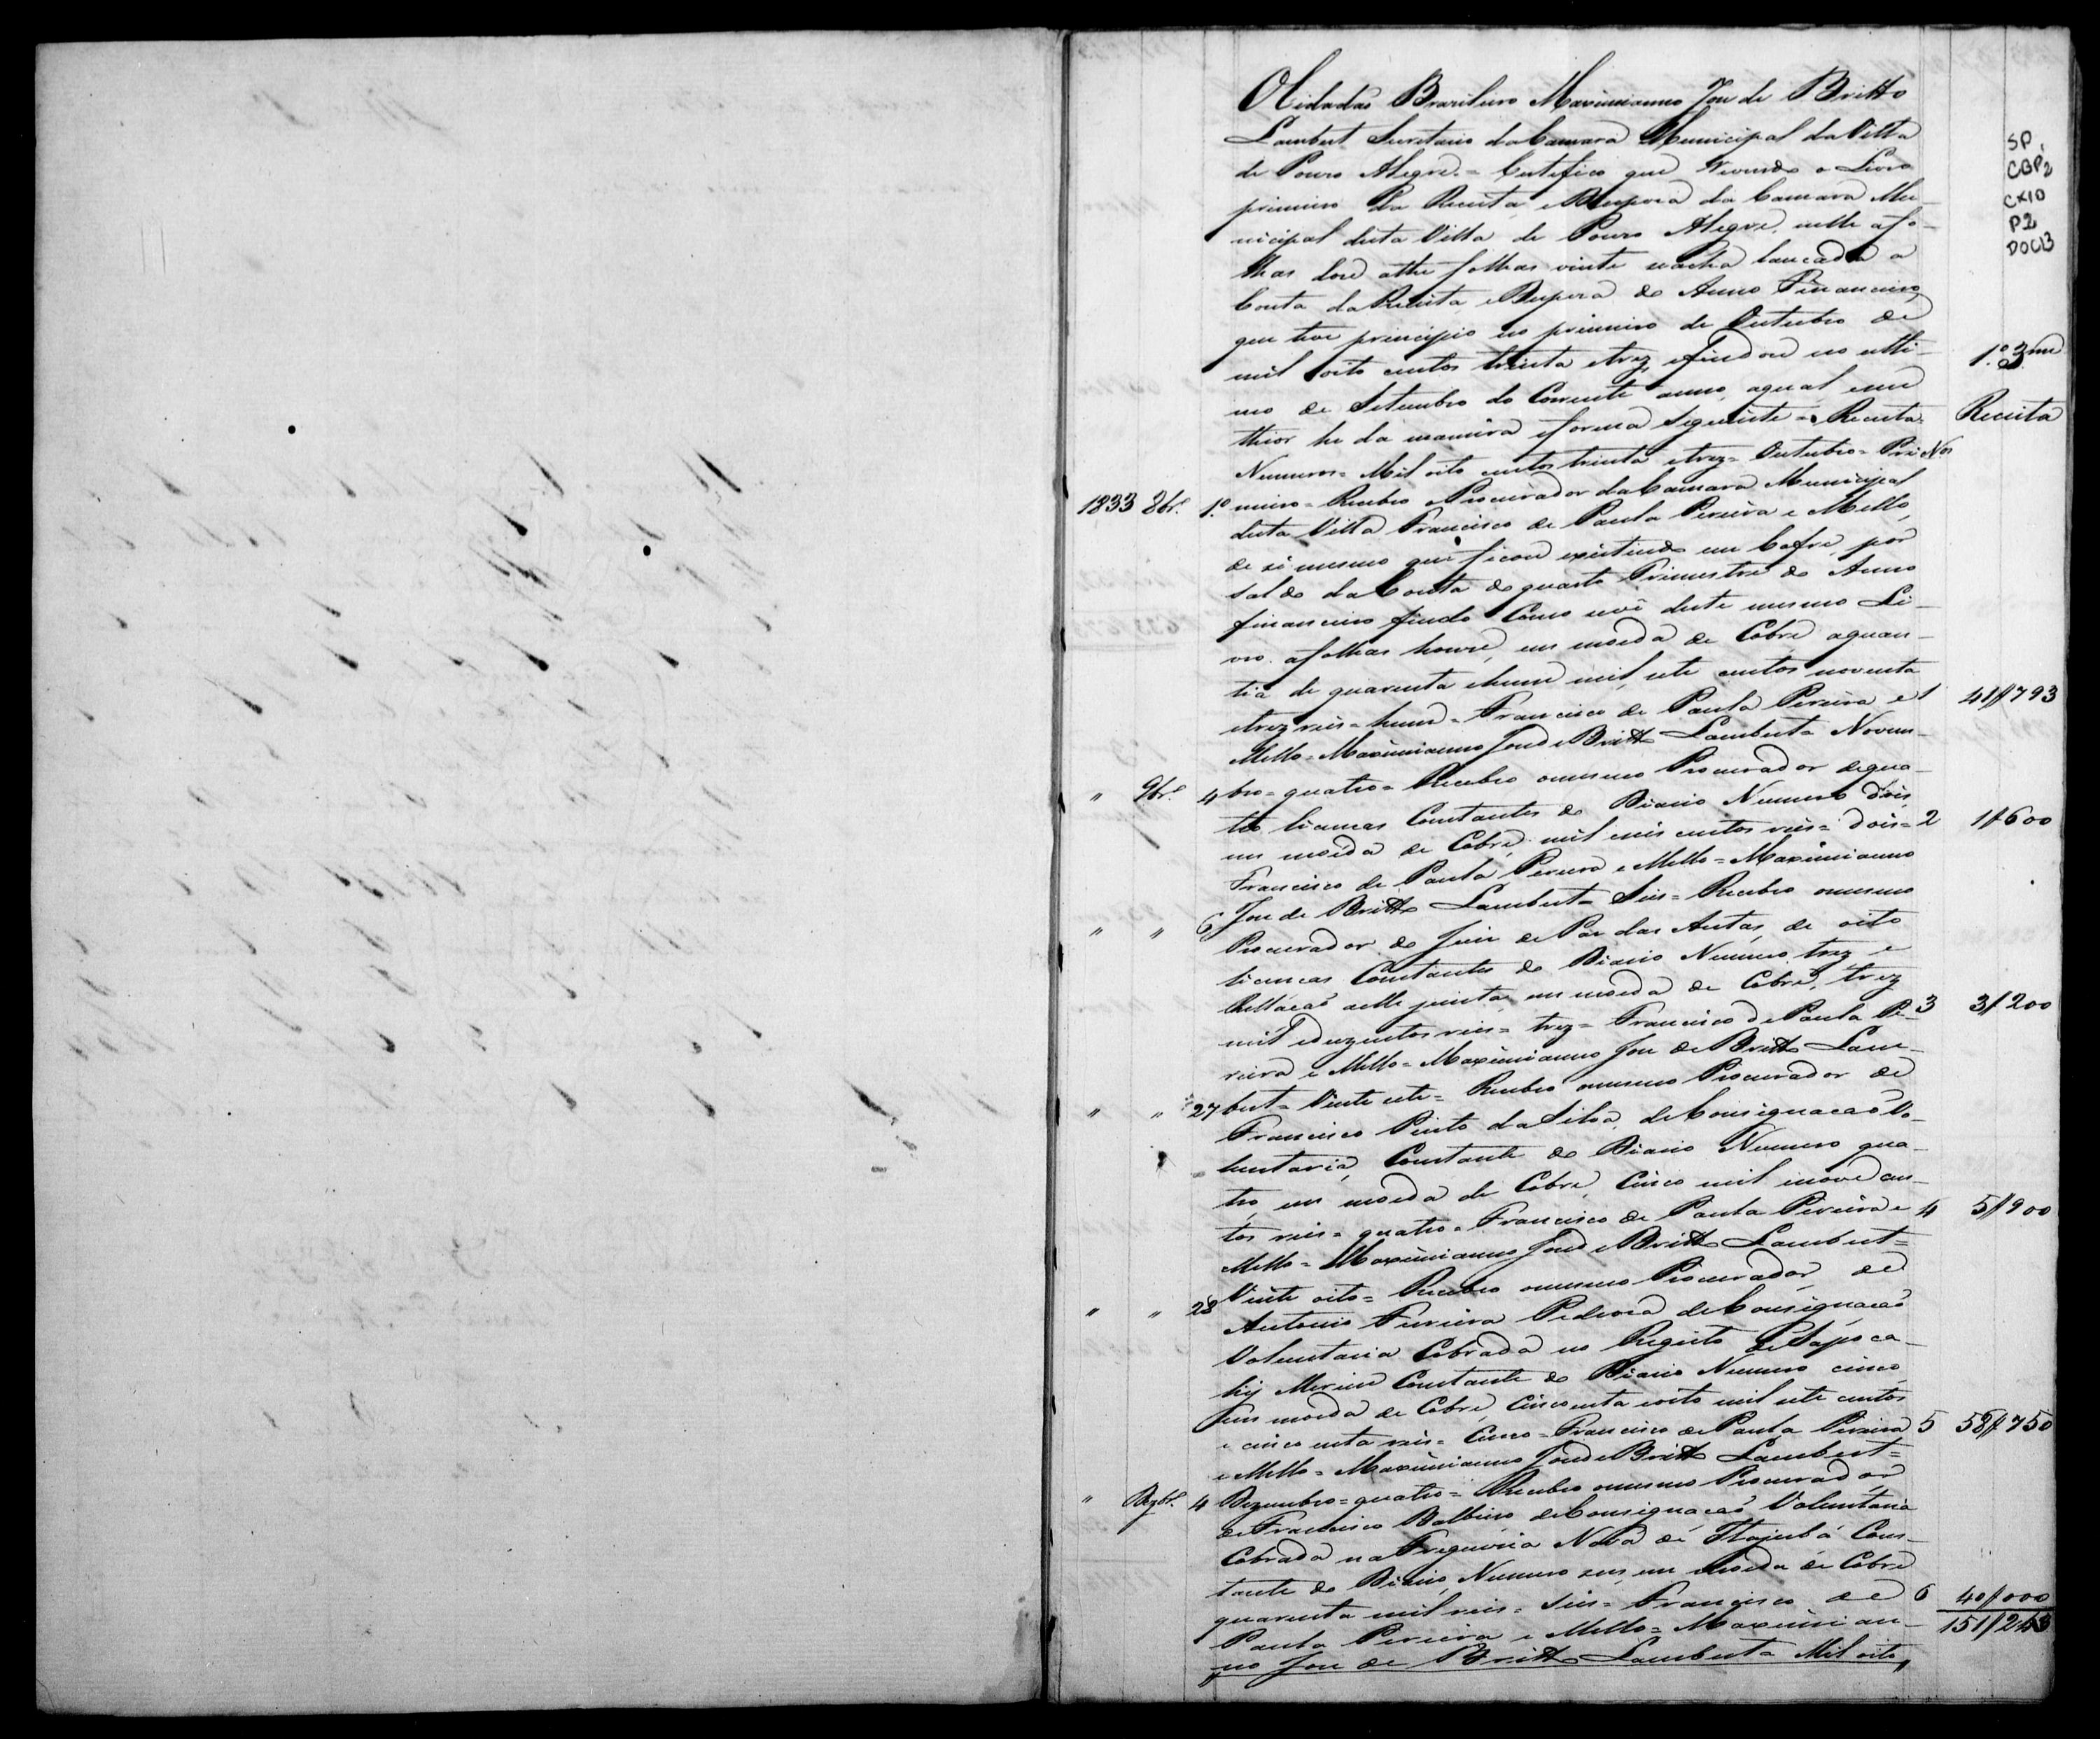 O Cidadaõ Brazileiro Maximianno Jose de Britto
Lambert Secretario da Camara Municipal da Villa
de Pouzo Alegre. = Certifico que revendo o Livro
primeiro da Receita, e Despeza da Camara Mu-
nicipal desta Villa de Pouzo Alegre, nelle a fo-
lhas doze athe folhas vinte se acha lancada a
Conta da Receita, e Despeza do Anno Financeiro,
que teve principio no primeiro de Outubro de
mil oito centos trinta e trez, e findou no ulti-
mo de Setembro do Corrente anno, a qual e seu
theor he da maneira e forma seguinte = Receita =
Numeros = Mil oito centos trinta e trez = Outubro = Pri
meiro = Recebeo o Procurador da Camara Municipal
desta Villa Francisco de Paula Pereira e Mello,
de si mesmo que ficou existindo em Cofre, por
saldo da Conta do quarto Trimestre do Anno
financeiro findo Como se vê deste mesmo Li-
vro a folhas honze, em moeda de Cobre, a quan-
tia de quarenta e hum mil, sete centos noventa
e trez reis = hum = Francisco de Paula Pereira e
Mello = Maximianno Jose de Britto Lambert = Novem-
bro = quatro = Recebeo o mesmo Procurador de qua-
tro licencas Constantes do Diario Numero dois,
em moeda de Cobre, mil seis centos reis = dois =
Francisco de Paula Pereira e Mello = Maximianno
Jose de Britto Lambert = Seis = Recebeo o mesmo
Procurador do Juiz de Paz das Antas, de oito
licencas Constantes do Diario Numero trez e
Rellacaõ a elle junta, em moeda de Cobre, trez
mil e duzentos reis = trez = Francisco de Paula Pe-
reira e Mello = Maximianno Jose de Britto Lam-
bert = Vinte sete = Recebeo o mesmo Procurador de
Francisco Pinto da Silva, de Consignacaõ Vo-
luntaria, Constante do Diario Numero qua-
tro, em moeda de Cobre, Cinco mil e nove cen-
tos reis = quatro = Francisco de Paula Pereira e
Mello = Maximianno Jose de Britto Lambert =
Vinte oito = Recebeo o mesmo Procurador, de
Antonio Ferreira Pedroza de Consignacaõ
Voluntaria Cobrada no Registo de Sapoca-
hij Merim Constante do Diario Numero cinco,
em moeda de Cobre, Cincoenta e oito mil sete centos
e cincoenta reis = Cinco = Francisco de Paula Pereira
e Mello = Maximianno Jose de Britto Lambert =
Dezembro = quatro = Recebeo o mesmo Procurador
de Francisco Balbino, de Consignacaõ Voluntaria
Cobrada na Freguezia Nova de Itajubá Cons-
tante do Diario Numero seis, em moeda de Cobre
quarenta mil reis = Seis = Francisco de
Paula Pereira e Mello = Maximian-
no Jose de Britto Lambert = Mil oito
1833 8br.º 1.º
" 9br.º 4
" " 6
" " 27
" " 28
" Dezbr.º 4
SP
CBP2
CX10
P2
DOC13
1.º 3me
Receita
Nos
1 41$793
2 1$600
3 3$200
4 5$900
5 58$750
6 40$000
151$243